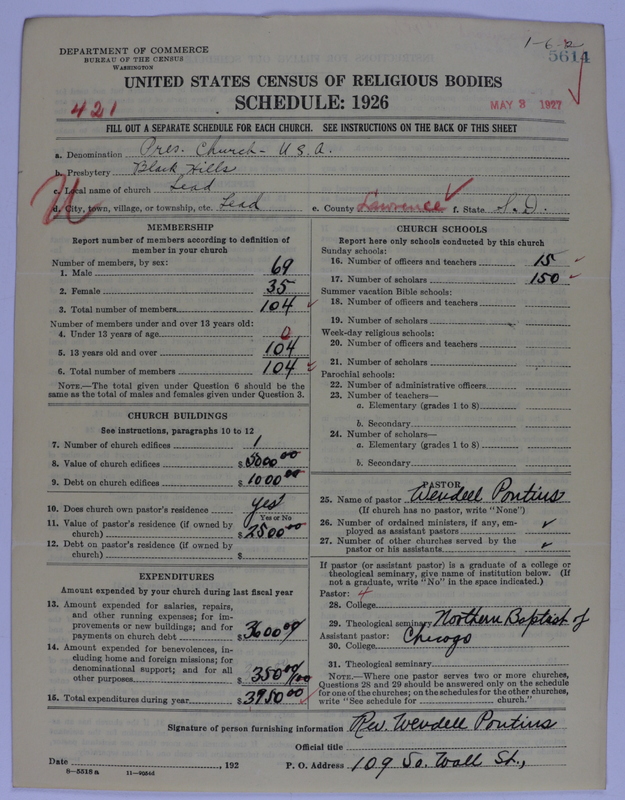 1-6-2
5614
DEPARTMENT OF COMMERCE
BUREAU OF THE CENSUS
WASHINGTON
UNITED STATES CENSUS OF RELIGIOUS BODIES
SCHEDULE: 1926
421
MAY 3 1927
FILL OUT A SEPARATE SCHEDULE FOR EACH CHURCH. SEE INSTRUCTIONS ON THE BACK OF THIS SHEET
a. Denomination Pres. Church - U.S.A.
b. Presbytery Black Hills
c. Local name of church Lead
d. City, town, village, or township, etc. Lead e. County Lawrence f. State S.D.
MEMBERSHIP
Report number of members according to definition of
member in your church
Number of members, by sex:
1. Male 69
2. Female 35
3. Total number of members 104
Number of members under and over 13 years old:
4. Under 13 years of age 0
5. 13 years old and over 104
6. Total number of members 104
NOTE.—The total given under Question 6 should be the
same as the total of males and females given under Question 3.
CHURCH BUILDINGS
See instructions, paragraphs 10 to 12
7. Number of church edifices 1
8. Value of church edifices $ 5000.00
9. Debt on church edifices $ 1000.00
10. Does church own pastor's residence yes
Yes or No
11. Value of pastor's residence (if owned by
church) $ 2500.00
12. Debt on pastor's residence (if owned by
church) $
EXPENDITURES
Amount expended by your church during last fiscal year
13. Amount expended for salaries, repairs,
and other running expenses; for im-
provements or new buildings; and for
payments on church debt $ 3600.00
14. Amount expended for benevolences, in-
cluding home and foreign missions; for
denominational support; and for all
other purposes $ 350.00
15. Total expenditures during year $ 3950.00
CHURCH SCHOOLS
Report here only schools conducted by this church
Sunday schools:
16. Number of officers and teachers 15
17. Number of scholars 150
Summer vacation Bible schools:
18. Number of officers and teachers
19. Number of scholars
Week-day religious schools:
20. Number of officers and teachers
21. Number of scholars
Parochial schools:
22. Number of administrative officers
23. Number of teachers—
a. Elementary (grades 1 to 8)
b. Secondary
24. Number of scholars—
a. Elementary (grades 1 to 8)
b. Secondary
PASTOR
25. Name of pastor Wendell Pontius
(If church has no pastor, write "None")
26. Number of ordained ministers, if any, em-
ployed as assistant pastors
27. Number of other churches served by the
pastor or his assistants
If pastor (or assistant pastor) is a graduate of a college or
theological seminary, give name of institution below. (If
not a graduate, write "No" in the space indicated.)
Pastor: 4
28. College
29. Theological seminary Northern Baptist of
Assistant pastor: Chicago
30. College
31. Theological seminary
NOTE.—Where one pastor serves two or more churches,
Questions 28 and 29 should be answered only on the schedule
for one of the churches; on the schedules for the other churches,
write "See schedule for church."
Signature of person furnishing information Rev. Wendell Pontius
Official title
Date , 192 P. O. Address 109 So. Wall St.,
8-5518 a